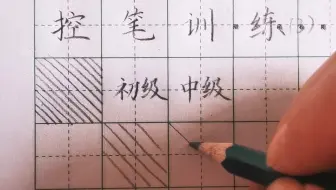 控笔训练(3)
初级 中级